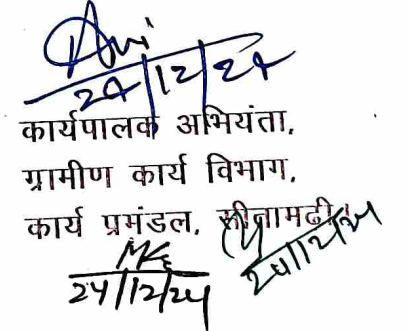 24/12/24
कार्यपालक अभियंता,
ग्रामीण कार्य विभाग,
कार्य प्रमंडल, सीतामढ़ी।
24/12/24
24/12/24